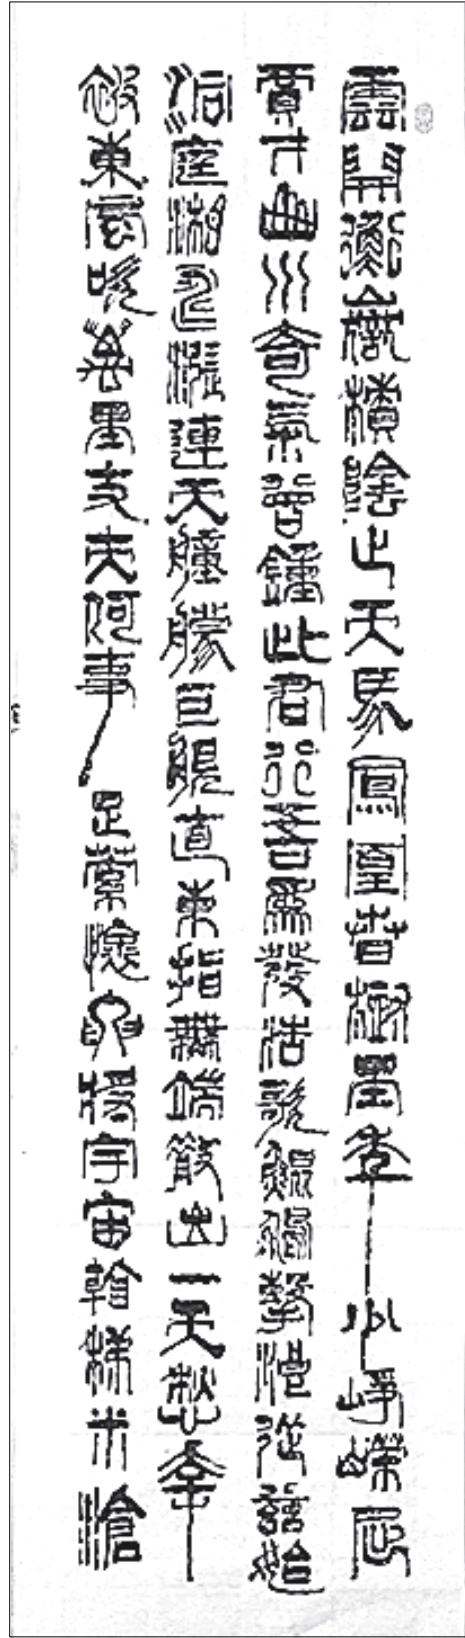 雲開衡嶽積陰止天馬鳳凰春樹里年少崢嶸屈
賈才山川奇氣曾鍾此君行吾爲發浩歌鯤鵬擊浪從茲始
洞庭湘水漲連天艟艨巨艦直東指無端散出一天愁幸
被東風吹萬里丈夫何事足縈懷要將宇宙看稊米滄